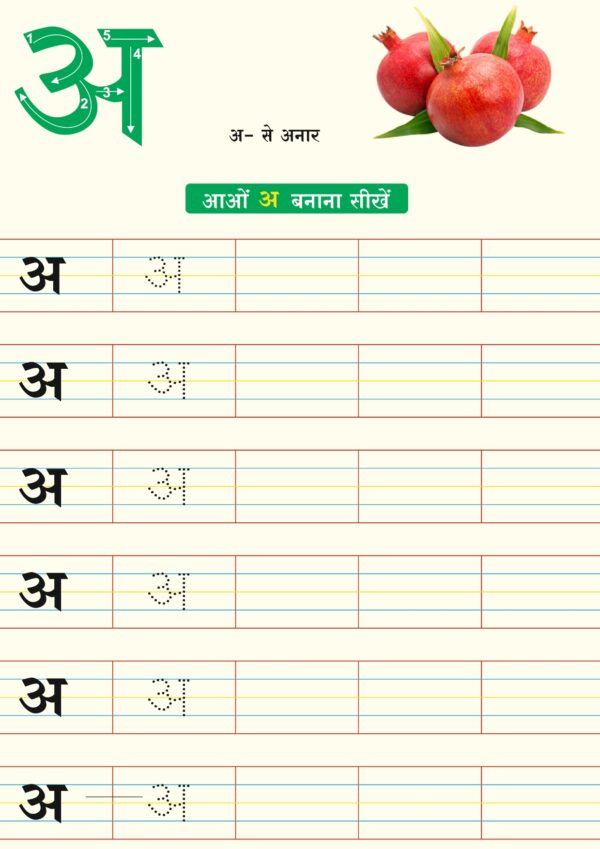 अ 1 2 3 4 5
अ- से अनार
आओं अ बनाना सीखें
अ अ
अ अ
अ अ
अ अ
अ अ
अ अ